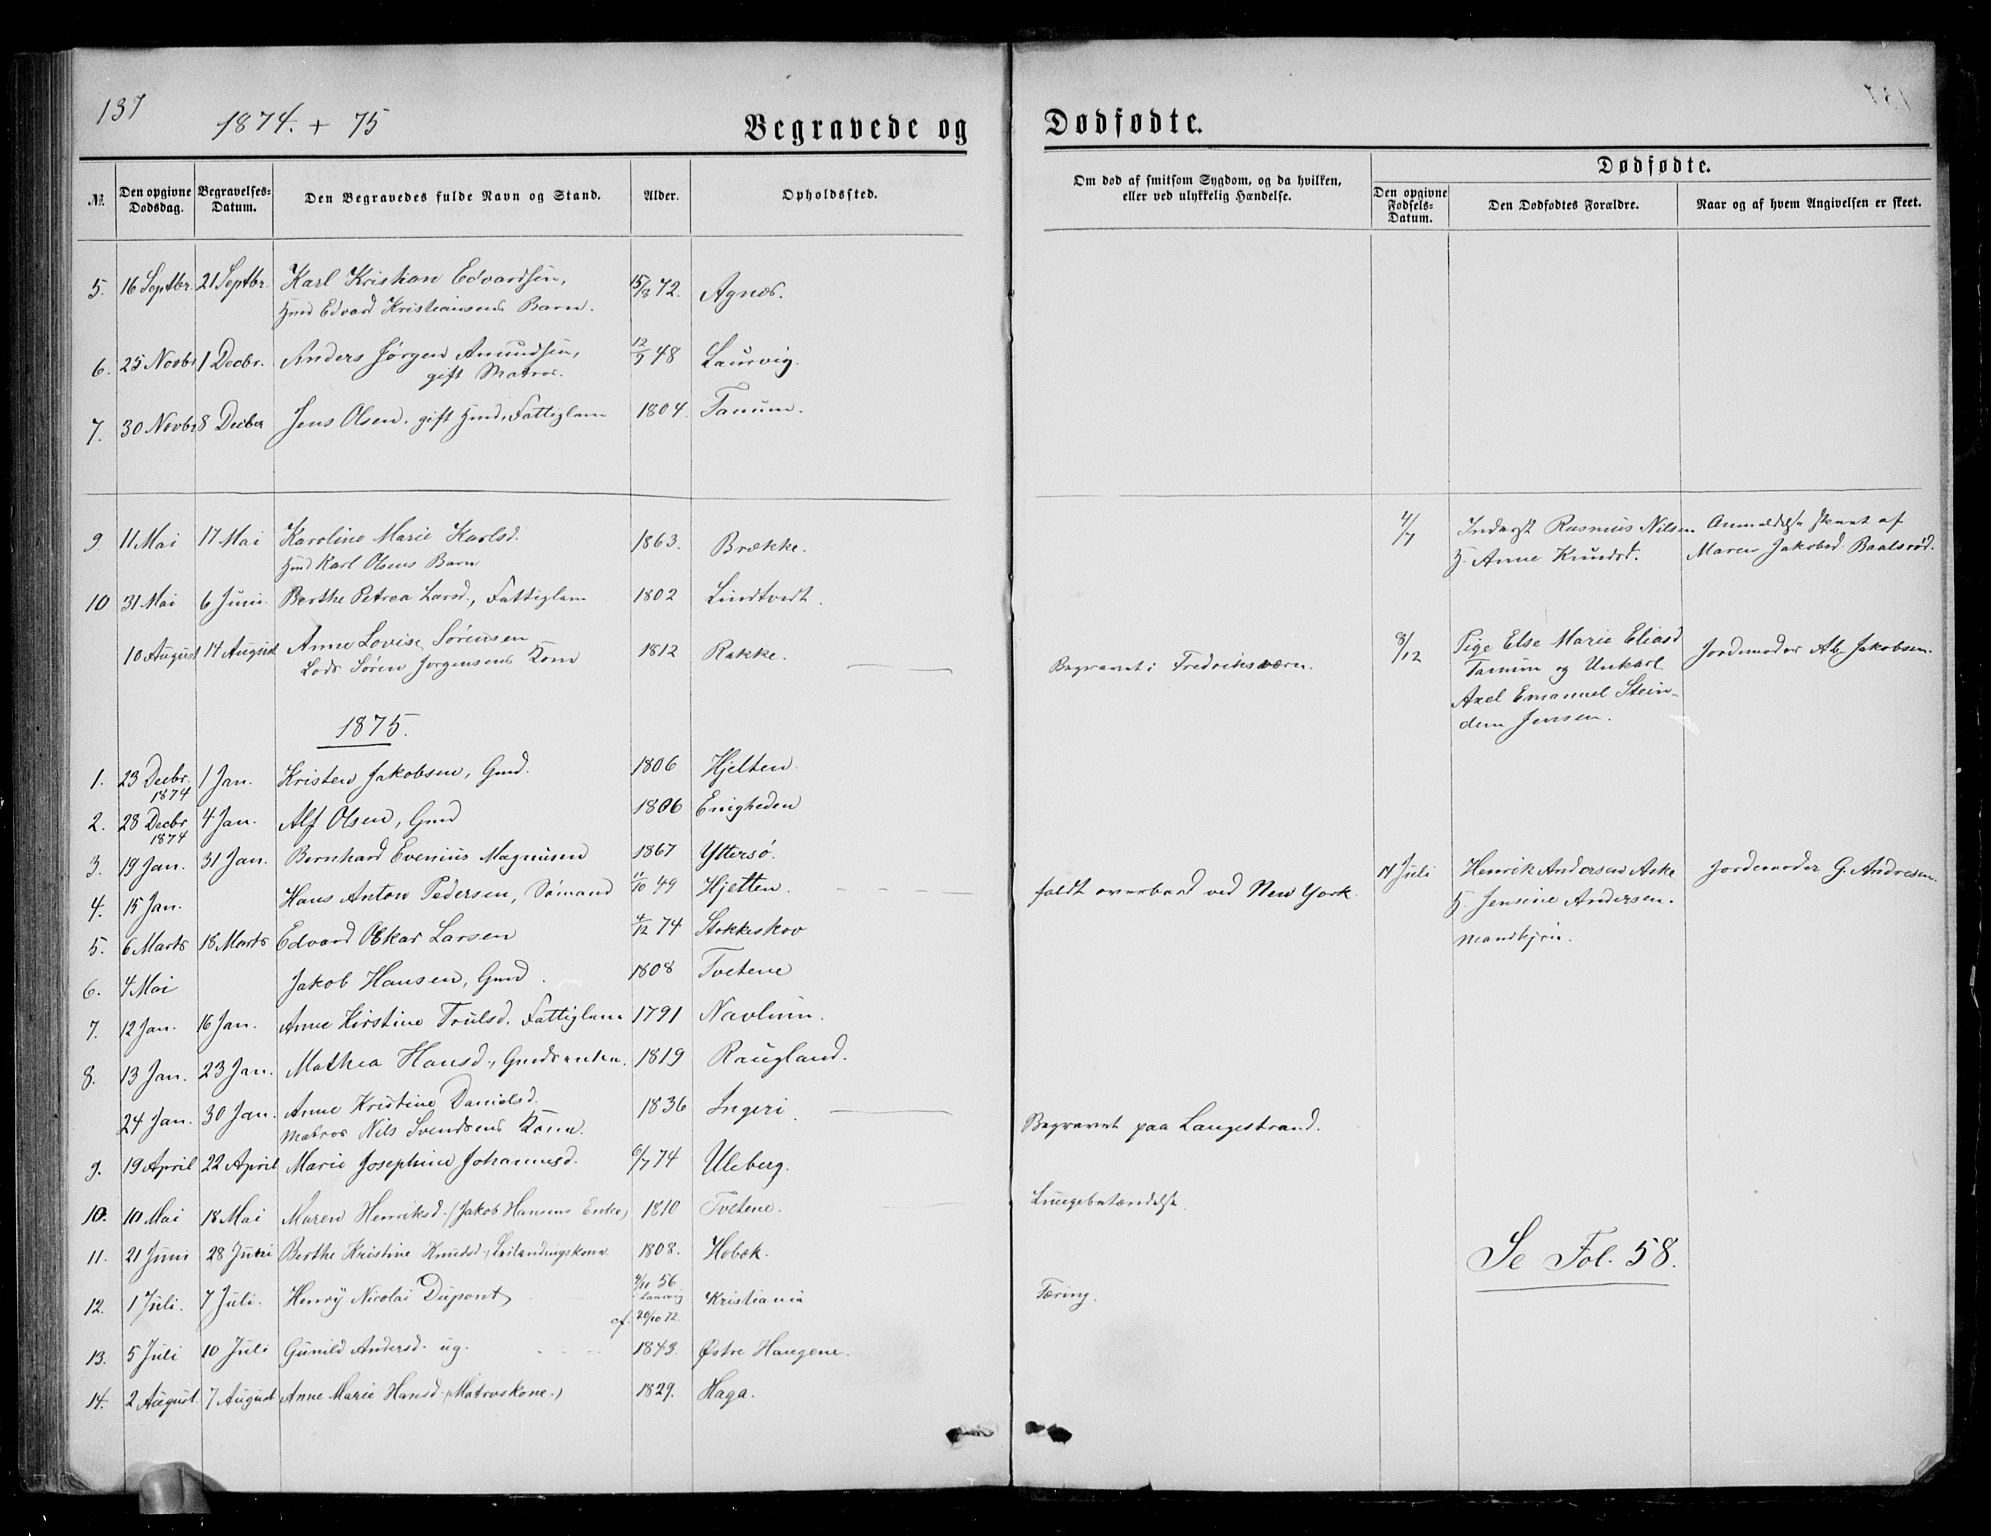 137
1874. + 75
Begravede og Dødfødte.
№
Den opgivne Dødsdag.
Begravelses-Datum.
Den Begravedes fulde Navn og Stand.
Alder.
Opholdssted.
Om død af smitsom Sygdom, og da hvilken, eller ved ulykkelig Hændelse.
Dødfødte.
Den opgivne Fødsels-Datum.
Den Dødfødtes Forældre.
Naar og af hvem Angivelsen er skeet.
5. 16 Septbr. 21 Septbr. Karl Kristian Edvardsen, 15/8 72. Agnes.
Hmd Edvard Kristiansens Barn.
6. 25 Novbr 1 Decbr. Anders Jørgen Amundsen, 12/9 48 Laurvig.
gift Matros.
7. 30 Novbr 8 Decbr Jens Olsen, gift Hmd, Fattiglem 1804. Tanum.
9. 11 Mai 17 Mai Karoline Marie Karlsd. 1863. Brække.
Hmd Karl Olsens Barn
4/7 Inderst Rasmus Nilsen Anmeldelse skeet af
H. Anne Knudsd. Maren Jakobsd. Baalsrød.
10 31 Mai 6 Juni Berthe Petrea Larsd., Fattiglem 1802 Lindtvedt.
10 August 14 August Anne Lovise Sørensen 1812 Rakke. Begravet i Fredriksværn.
Lods Søren Jørgensens Kone
8/12 Pige Else Marie Eliasd Jordemoder Ab. Jakobsen.
Tanum og Unkarl
Axel Emanuel Stein-
dem Jensen.
1875.
1. 23 Decbr. 1874 1 Jan. Kristen Jakobsen, Gmd. 1806 Hjelten.
2. 28 Decbr 1874 4 Jan. Alf Olsen, Gmd 1806 Enigheden
3. 19 Jan. 31 Jan. Bernhard Evenius Magnusen 1867 Yttersø.
4. 15 Jan. Hans Anton Pedersen, Sømand 11/10 49 Hjelten. faldt overbord ved New York.
14 Juli Henrik Andersen Aske Jordemoder G. Andresen
H. Jensine Andersen.
5. 6 Marts 18 Marts Edvard Oskar Larsen 4/12 74 Stokkeskov
6. 4 Mai Jakob Hansen, Gmd. 1808 Tvetene
7. 12 Jan. 16 Jan. Anne Kirstine Trulsd. Fattiglem 1791 Navlum.
8. 13 Jan. 23 Jan. Mathea Hansd., Gmdsenke. 1819 Raugland.
24 Jan. 30 Jan. Anne Kristine Danielsd. 1836 Ingeri. Begravet paa Langestrand.
Matros Nils Svendsens Kone.
9. 19 April 22 April Marie Josephine Johannesd. 6/7 74 Uleberg.
10. 10 Mai 18 Mai Maren Henriksd. (Jakob Hansens Enke) 1810 Tvetene. Lungebetændelse.
11. 21 Juni 28 Juni Berthe Kristine Knudsd. Leilændingskone 1808. Hobæk.
Se Fol. 58.
12. 1 Juli. 7 Juli. Henry Nicolai Dupont 4/11 56 i Laurvig Kristiania Tæring.
cf. 20/10 72.
13. 5 Juli 10 Juli Gunild Andersd. ug. 1843. Østre Haugene.
14. 2 August. 7 August Anne Marie Hansd. (Matroskone.) 1829. Haga.